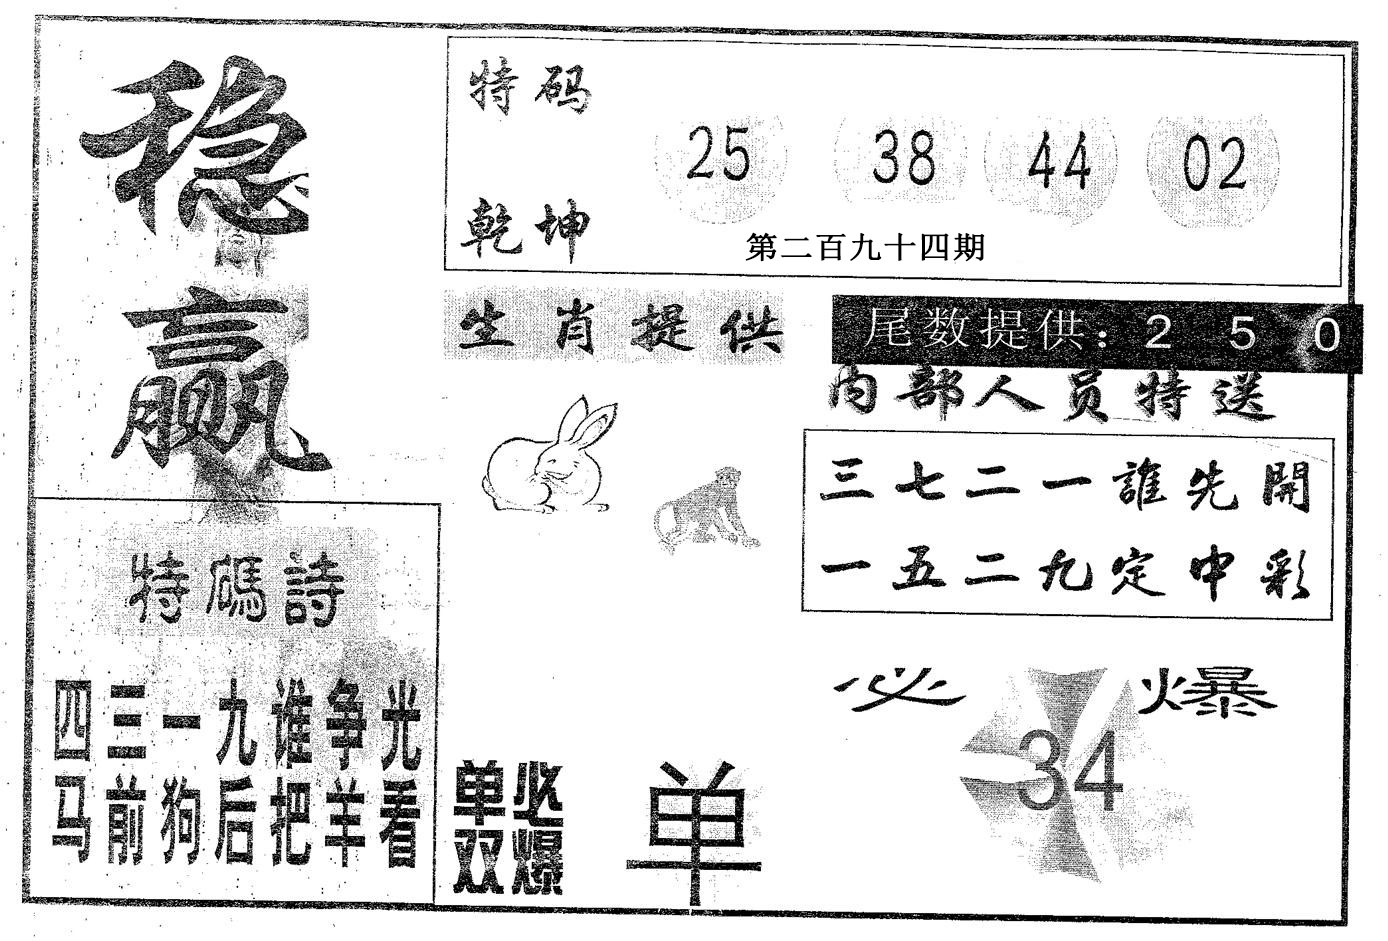 稳赢
特码
乾坤
25 38 44 02
第二百九十四期
生肖提供
尾数提供：2 5 0
内部人员特送
三七二一誰先開
一五二九定中彩
特碼詩
四三一九谁争光
马前狗后把羊看
单双必爆
单
必爆
34